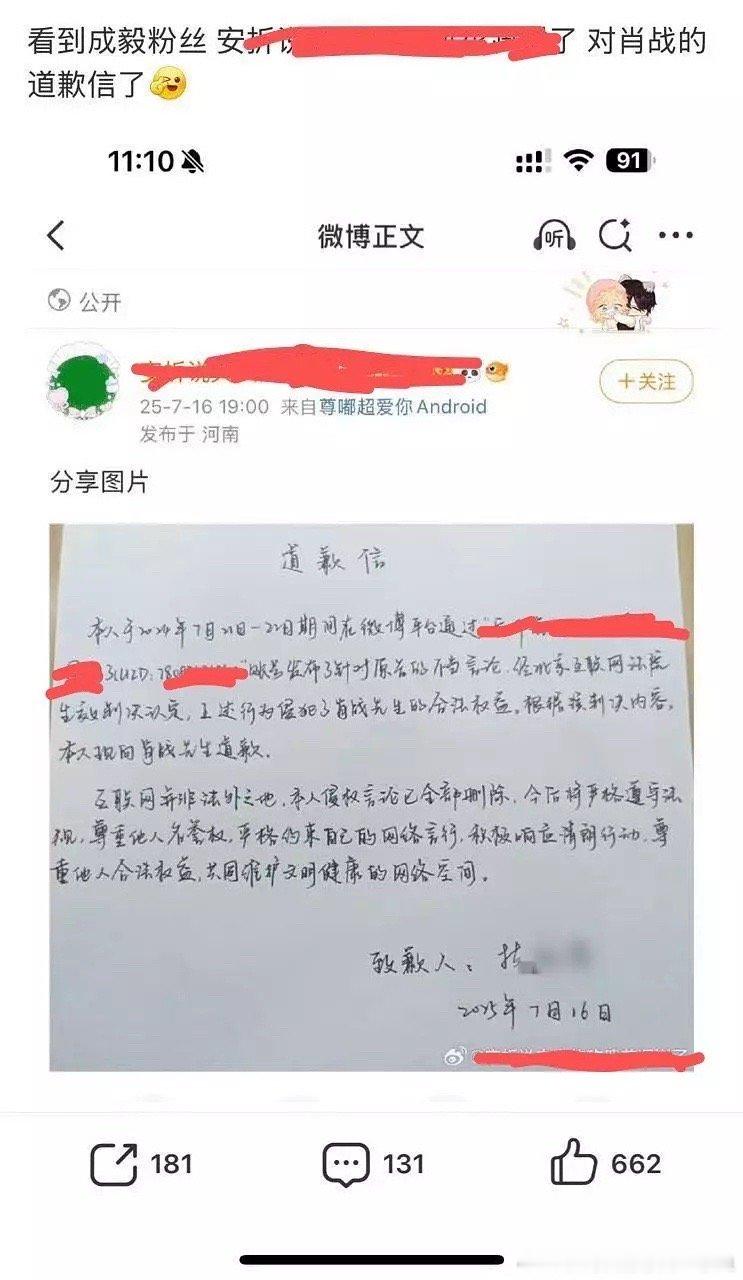 看到成毅粉丝 安折说 了 对肖战的
道歉信了
11:10 91
微博正文 听
公开
安折说
25-7-16 19:00 来自尊嘟超爱你Android
发布于 河南
+关注
分享图片
道歉信
本人于2024年7月21日-22日期间在微博平台通过"
(UID:780 "账号发布了针对原告的不当言论,经北京互联网法院
生效判决认定,上述行为侵犯了肖战先生的合法权益。根据该判决内容,
本人现向肖战先生道歉。
互联网并非法外之地,本人侵权言论已全部删除,今后将严格遵守法
规,尊重他人名誉权,严格约束自己的网络言行,积极响应清朗行动,尊
重他人合法权益,共同维护文明健康的网络空间。
致歉人:
2025年7月16日
181 131 662